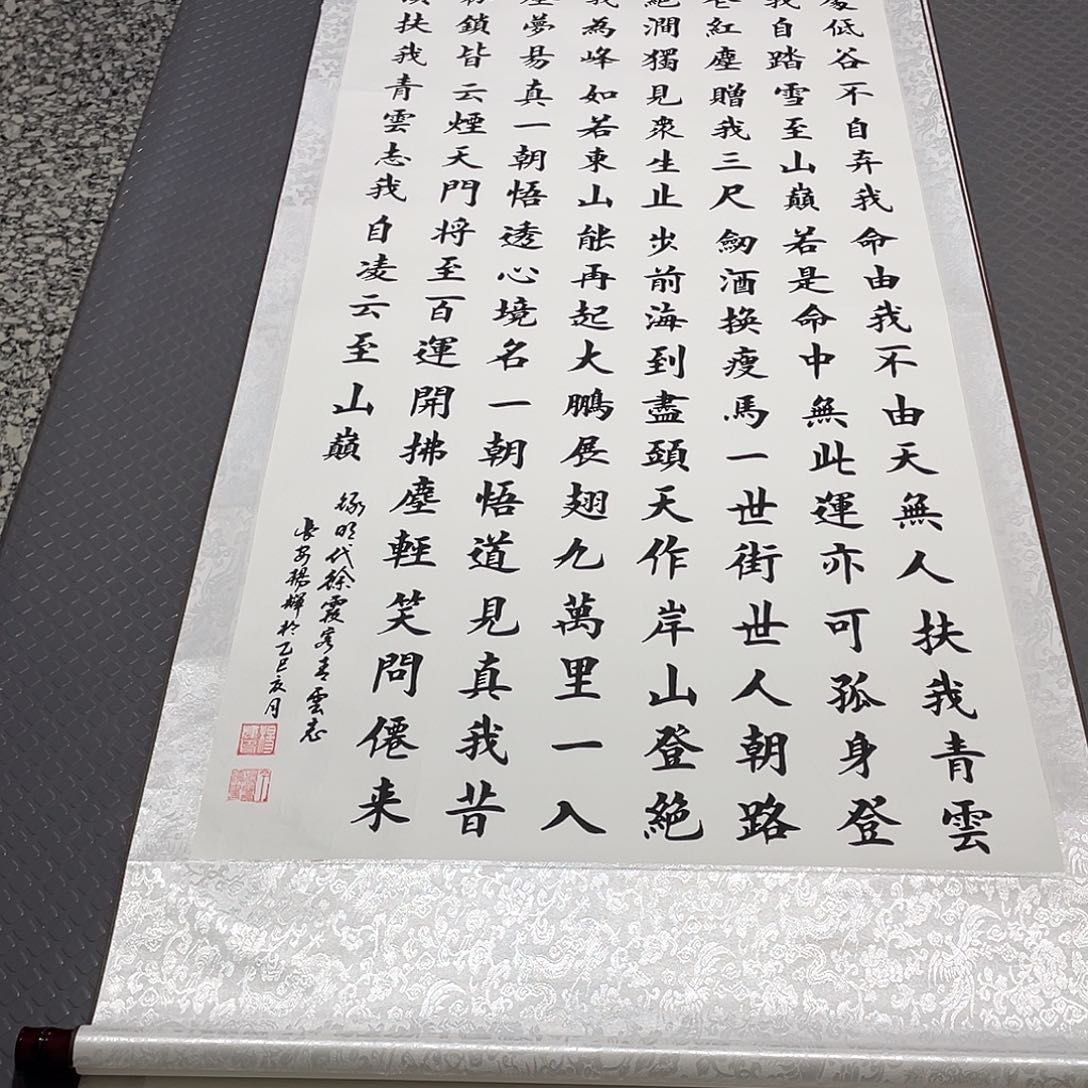 低谷不自弃我命由我不由天無人扶我青雲
我自踏雪至山巔若是命中無此運亦可孤身登
紅塵贈我三尺劒酒換瘦馬一世街世人朝路
絕澗獨見衆生止步前海到盡頭天作岸山登絕
我為峰如若東山能再起大鵬展翅九萬里一入
塵夢易真一朝悟透心境名一朝悟道見真我昔
鎖皆云煙天門将至百運開拂塵輕笑問僊来
扶我青雲志我自凌云至山巔
錄明代徐霞客青雲志
長安楊輝於乙巳亥月